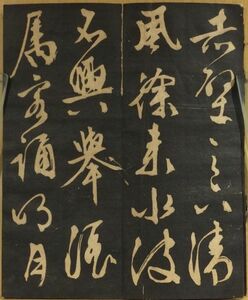 赤壁之下清
風徐來水波
不興舉酒
屬客誦明月